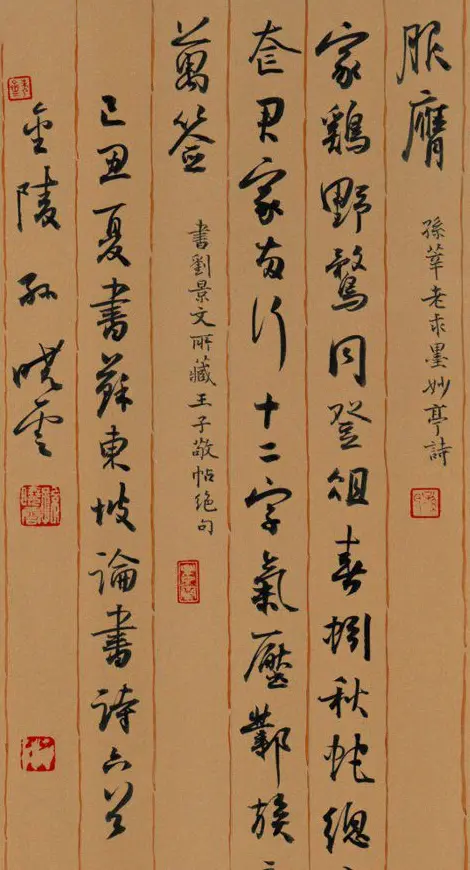 服膺 孫莘老求墨妙亭詩
家鷄野鶩同登俎春蚓秋蛇總
奩君家兩行十二字氣壓鄴侯
萬簽 書劉景文所藏王子敬帖絕句
己丑夏書蘇東坡論書詩六首
金陵孫曉雲